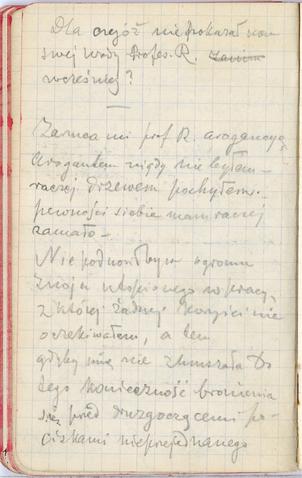 Dla czegóż nie pokazał nam
swej wody Profes. R.
wcześniej?
Zarzuca mi prof R. arogancyę
Arogantem nigdy nie byłem —
raczej drzewem pochyłem.
pewności siebie mam raczej
zamało —
Nie podnosiłbym ogromu
znoju utopionego w pracy,
z której żadnej korzyści nie
oczekiwałem, a tem
gdyby mię nie zmuszała do
tego konieczność bronienia
się przed druzgocącemi po-
ciskami nieprzejednanego